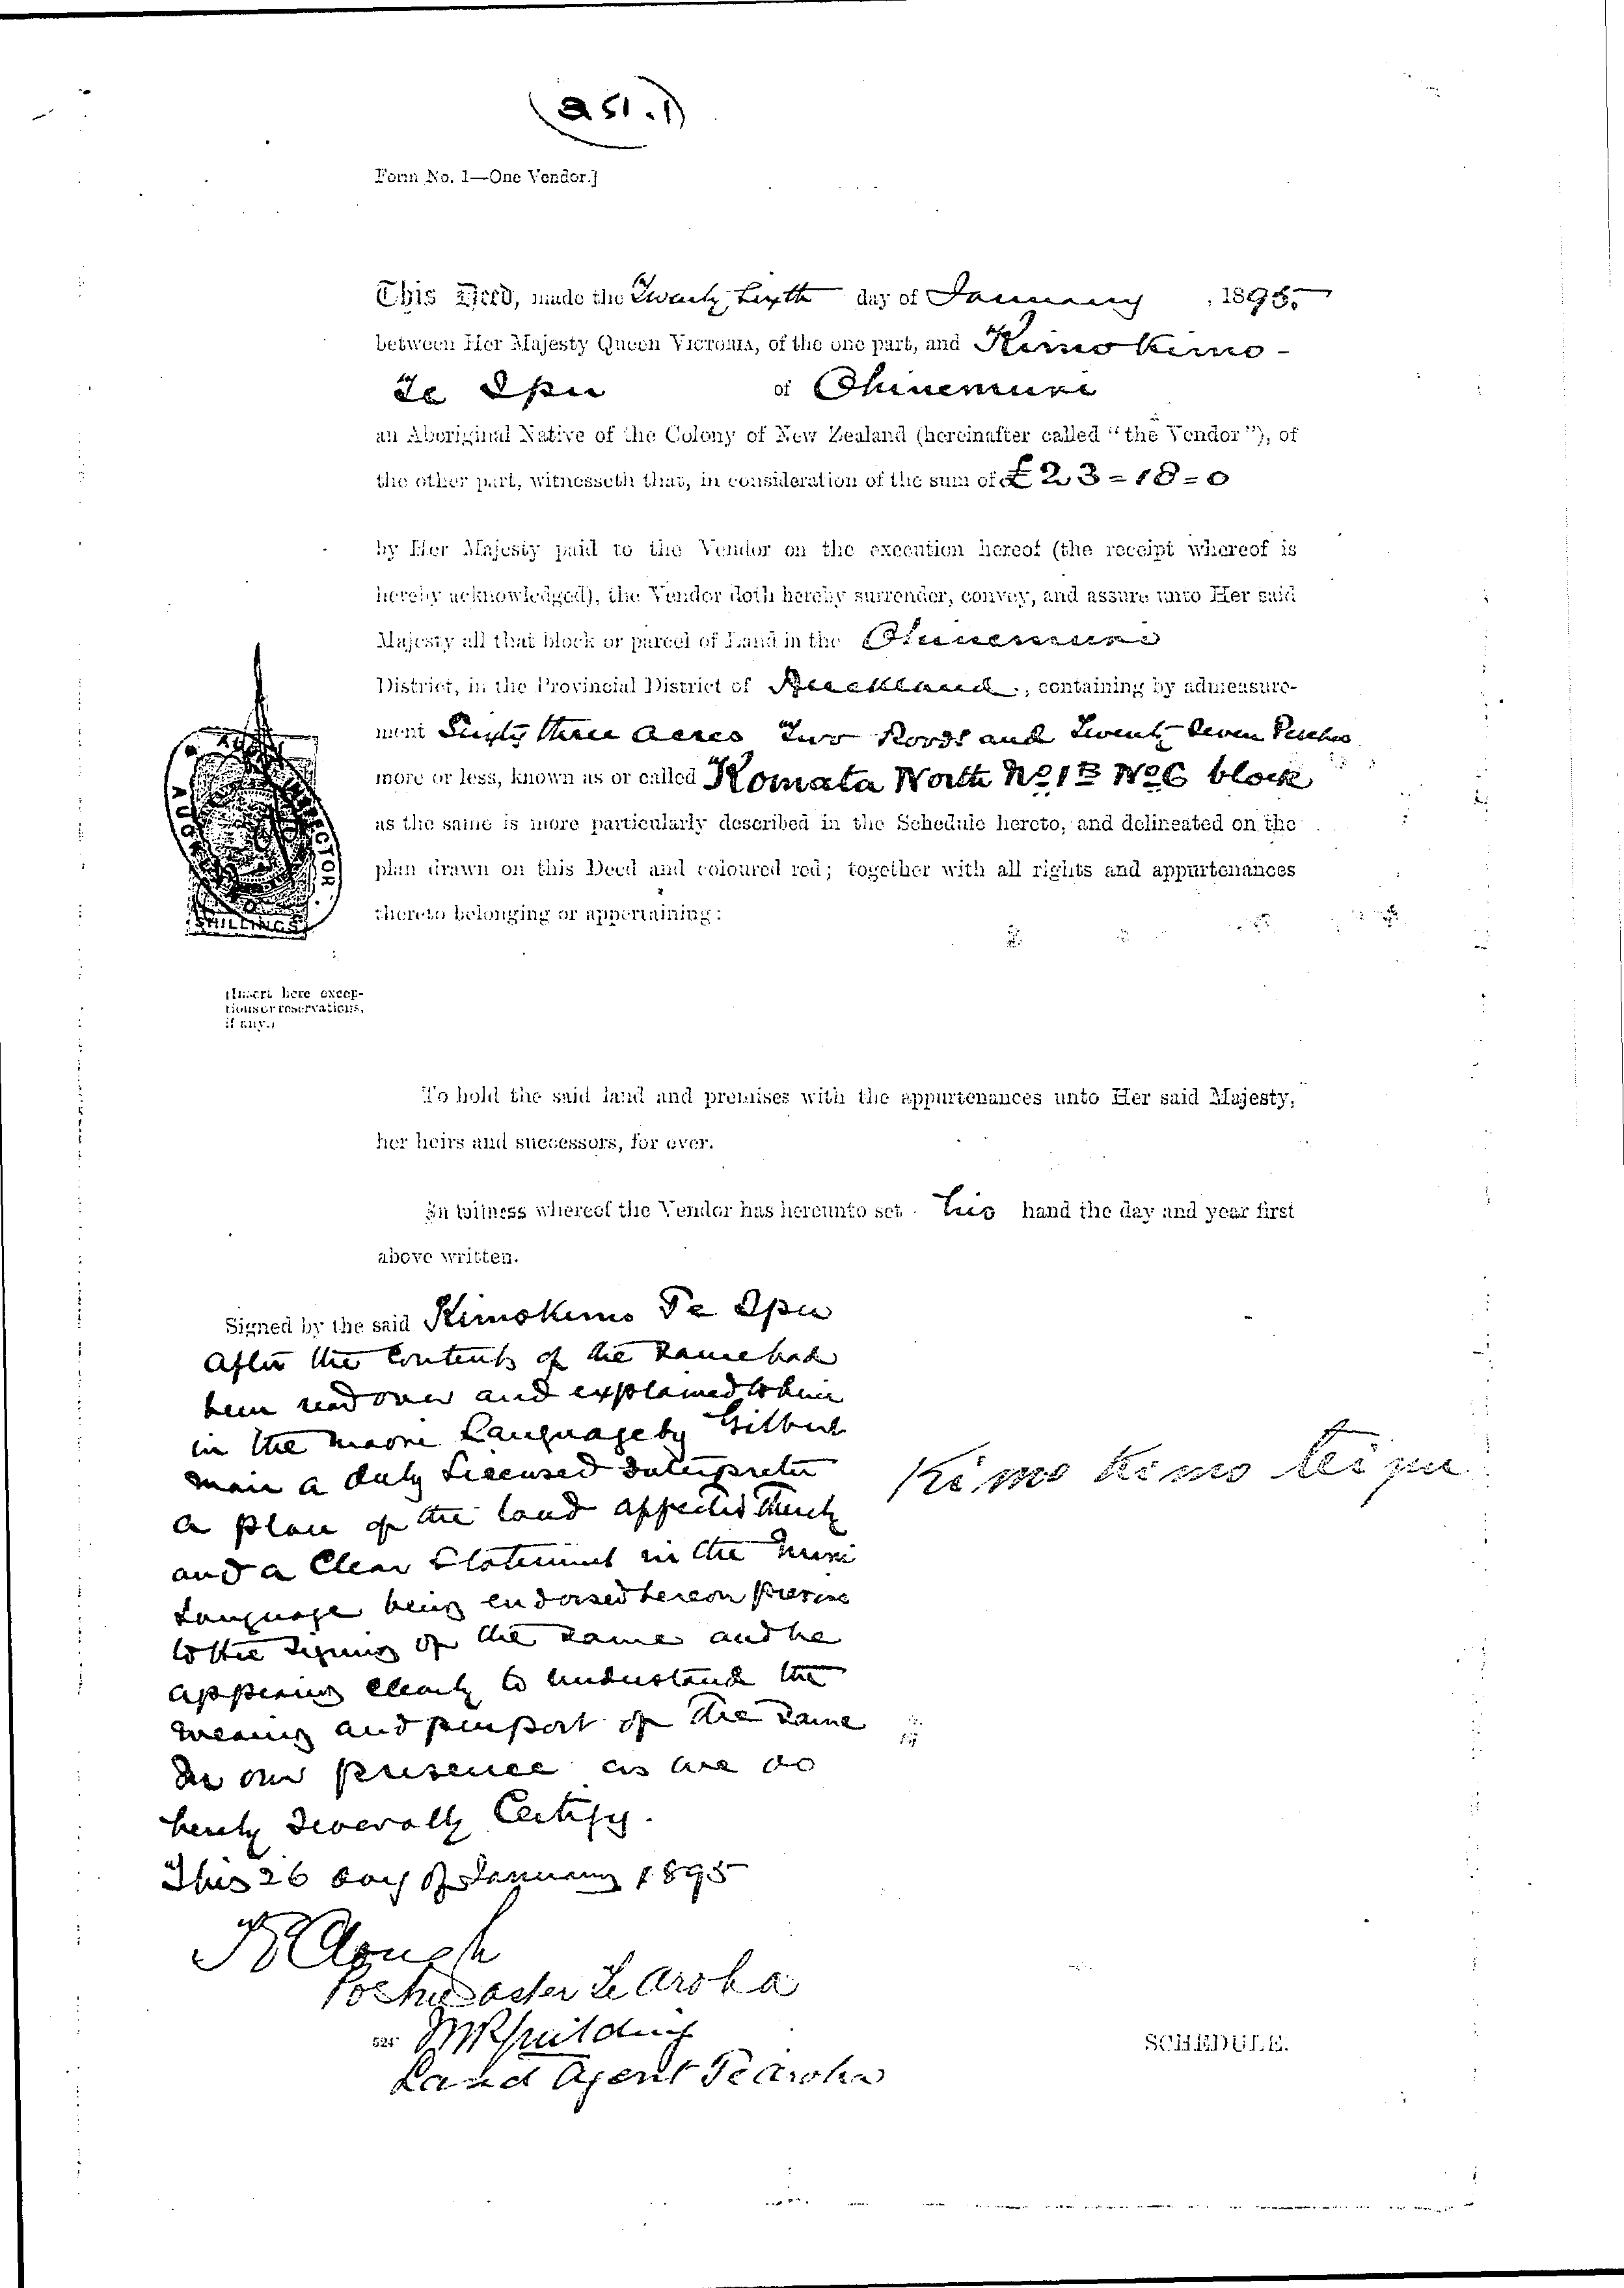 (251.1)
Form No. 1—One Vendor.]
This Deed, made the Twenty Sixth day of January, 1895
between Her Majesty Queen Victoria, of the one part, and Kimokimo
Te Ipu of Ohinemuri
an Aboriginal Native of the Colony of New Zealand (hereinafter called "the Vendor"), of
the other part, witnesseth that, in consideration of the sum of £23=18=0
by Her Majesty paid to the Vendor on the execution hereof (the receipt whereof is
hereby acknowledged), the Vendor doth hereby surrender, convey, and assure unto Her said
Majesty all that block or parcel of Land in the Ohinemuri
District, in the Provincial District of Auckland, containing by admeasure-
ment Sixty three acres Two Roods and Twenty Seven Perches
more or less, known as or called Komata North No 1B No 6 block
as the same is more particularly described in the Schedule hereto, and delineated on the
plan drawn on this Deed and coloured red; together with all rights and appurtenances
thereto belonging or appertaining:
SHILLINGS
(Insert here excep-
tions or reservations,
if any.)
To hold the said land and premises with the appurtenances unto Her said Majesty,
her heirs and successors, for ever.
In witness whereof the Vendor has hereunto set his hand the day and year first
above written.
Signed by the said Kimokimo Te Ipu
After the Contents of the same had
been read over and explained to him
in the maori Language by Gilbert
Mair a duly Licensed Interpreter
a plan of the land affected thereby
and a Clear Statement in the maori
Language being endorsed hereon previous
to the signing of the same and he
appearing clearly to understand the
meaning and purport of the same
In our presence as we do
hereby Severally Certify.
This 26 day of January 1895
Kimo kimo te ipu
Clough
Postmaster Te Aroha
Land Agent Te Aroha
SCHEDULE.